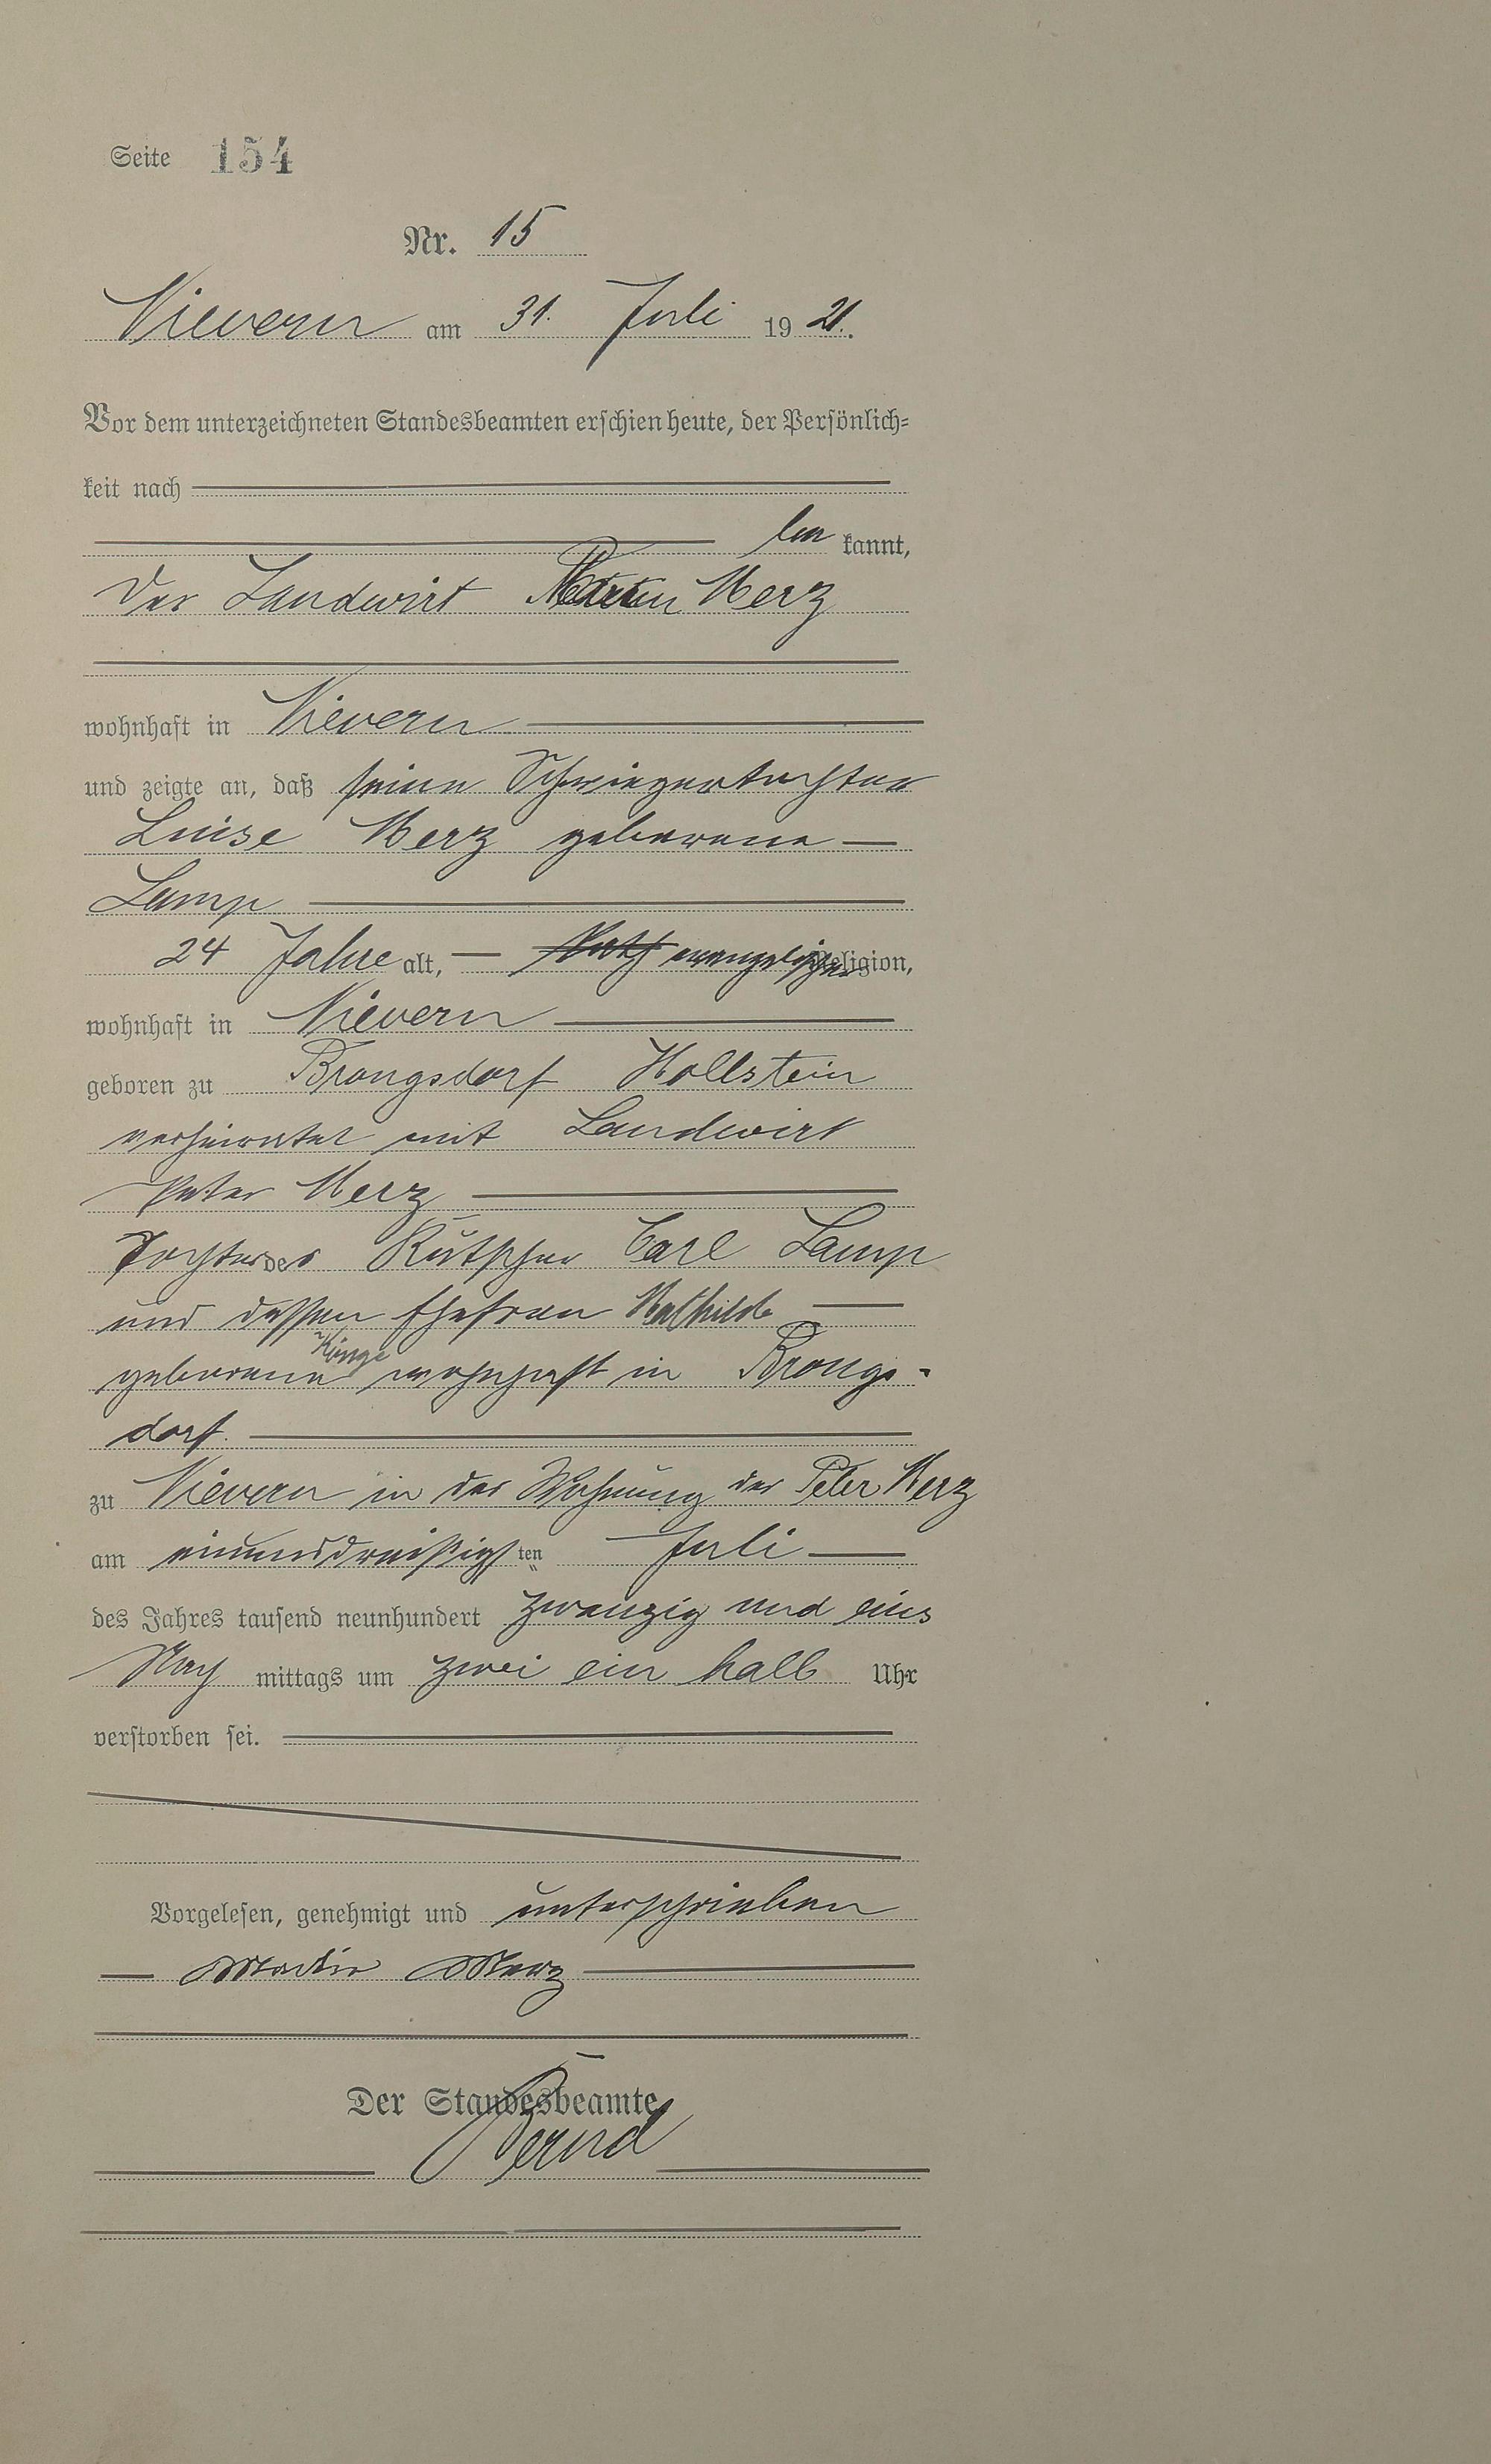 Seite 154
Nr. 15
Nievern am 31. Juli 1921.
Vor dem unterzeichneten Standesbeamten erschien heute, der Persönlich-
keit nach
be kannt,
der Landwirt Martin Merz
wohnhaft in Nievern
und zeigte an, daß seine Schwiegertochter
Luise Merz geborene
Lamp
24 Jahre alt, evangelischer Religion,
wohnhaft in Nievern
geboren zu Brongsdorf Hollstein
verheiratet mit Landwirt
Peter Merz
Tochter des Kutscher Carl Lamp
und dessen Ehefrau Mathilde
geborene wohnhaft in Brongs-
dorf.
zu Nievern in der Wohnung des Peter Merz
am einunddreißigsten Juli
des Jahres tausend neunhundert zwanzig und eins
Nach mittags um zwei ein halb Uhr
verstorben sei.
Vorgelesen, genehmigt und unterschrieben
Martin Merz
Der Standesbeamte
Bernd